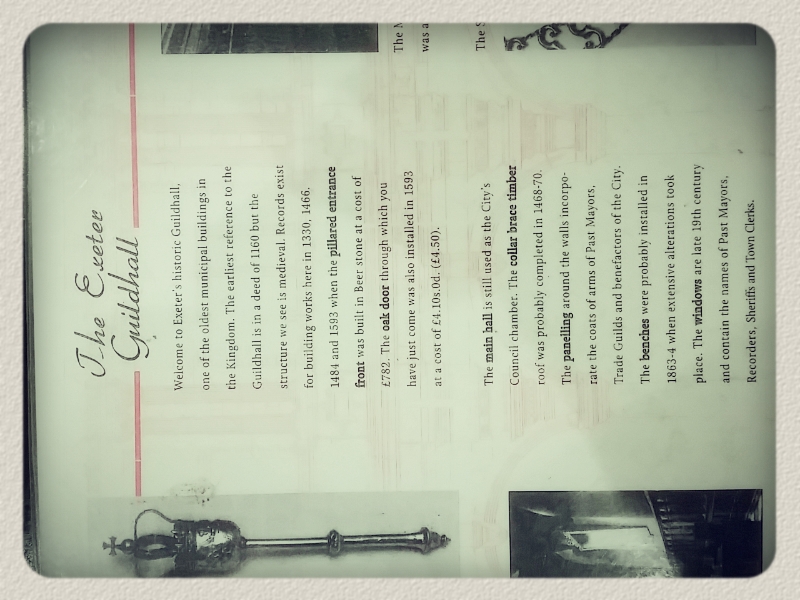 The Exeter
Guildhall
Welcome to Exeter's historic Guildhall,
one of the oldest municipal buildings in
the Kingdom. The earliest reference to the
Guildhall is in a deed of 1160 but the
structure we see is medieval. Records exist
for building works here in 1330, 1466,
1484 and 1593 when the pillared entrance
front was built in Beer stone at a cost of
£782. The oak door through which you
have just come was also installed in 1593
at a cost of £4.10s.0d. (£4.50).
The main hall is still used as the City's
Council chamber. The collar brace timber
roof was probably completed in 1468-70.
The panelling around the walls incorpo-
rate the coats of arms of Past Mayors,
Trade Guilds and benefactors of the City.
The benches were probably installed in
1863-4 when extensive alterations took
place. The windows are late 19th century
and contain the names of Past Mayors,
Recorders, Sheriffs and Town Clerks.
The
was a
The